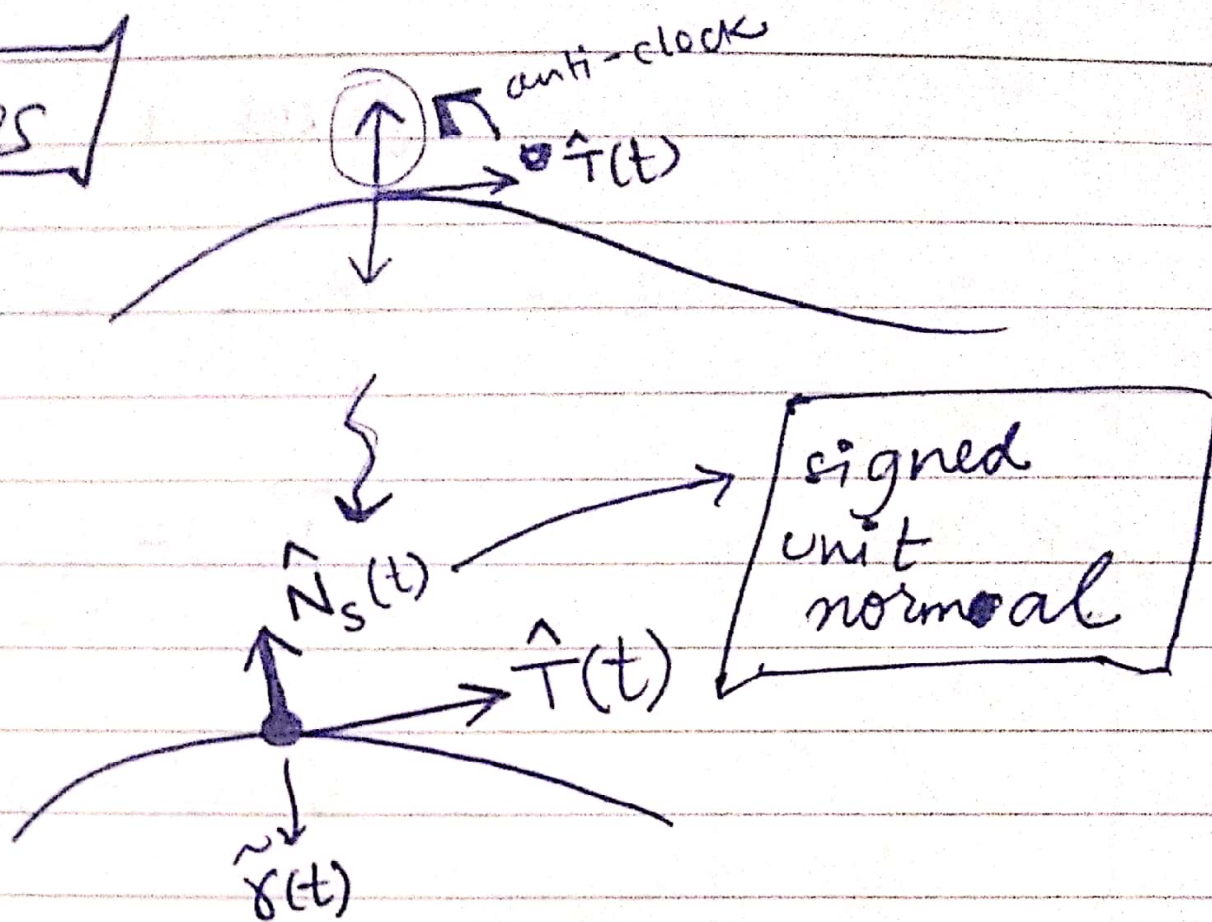 es
anti-clock
T̂(t)
N̂ₛ(t)
signed
unit
normal
T̂(t)
γ̃(t)